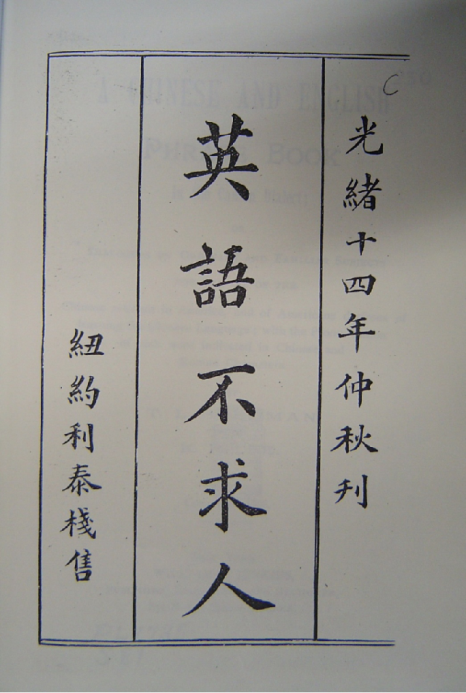 光緒十四年仲秋刋
英語不求人
紐約利泰棧售
C